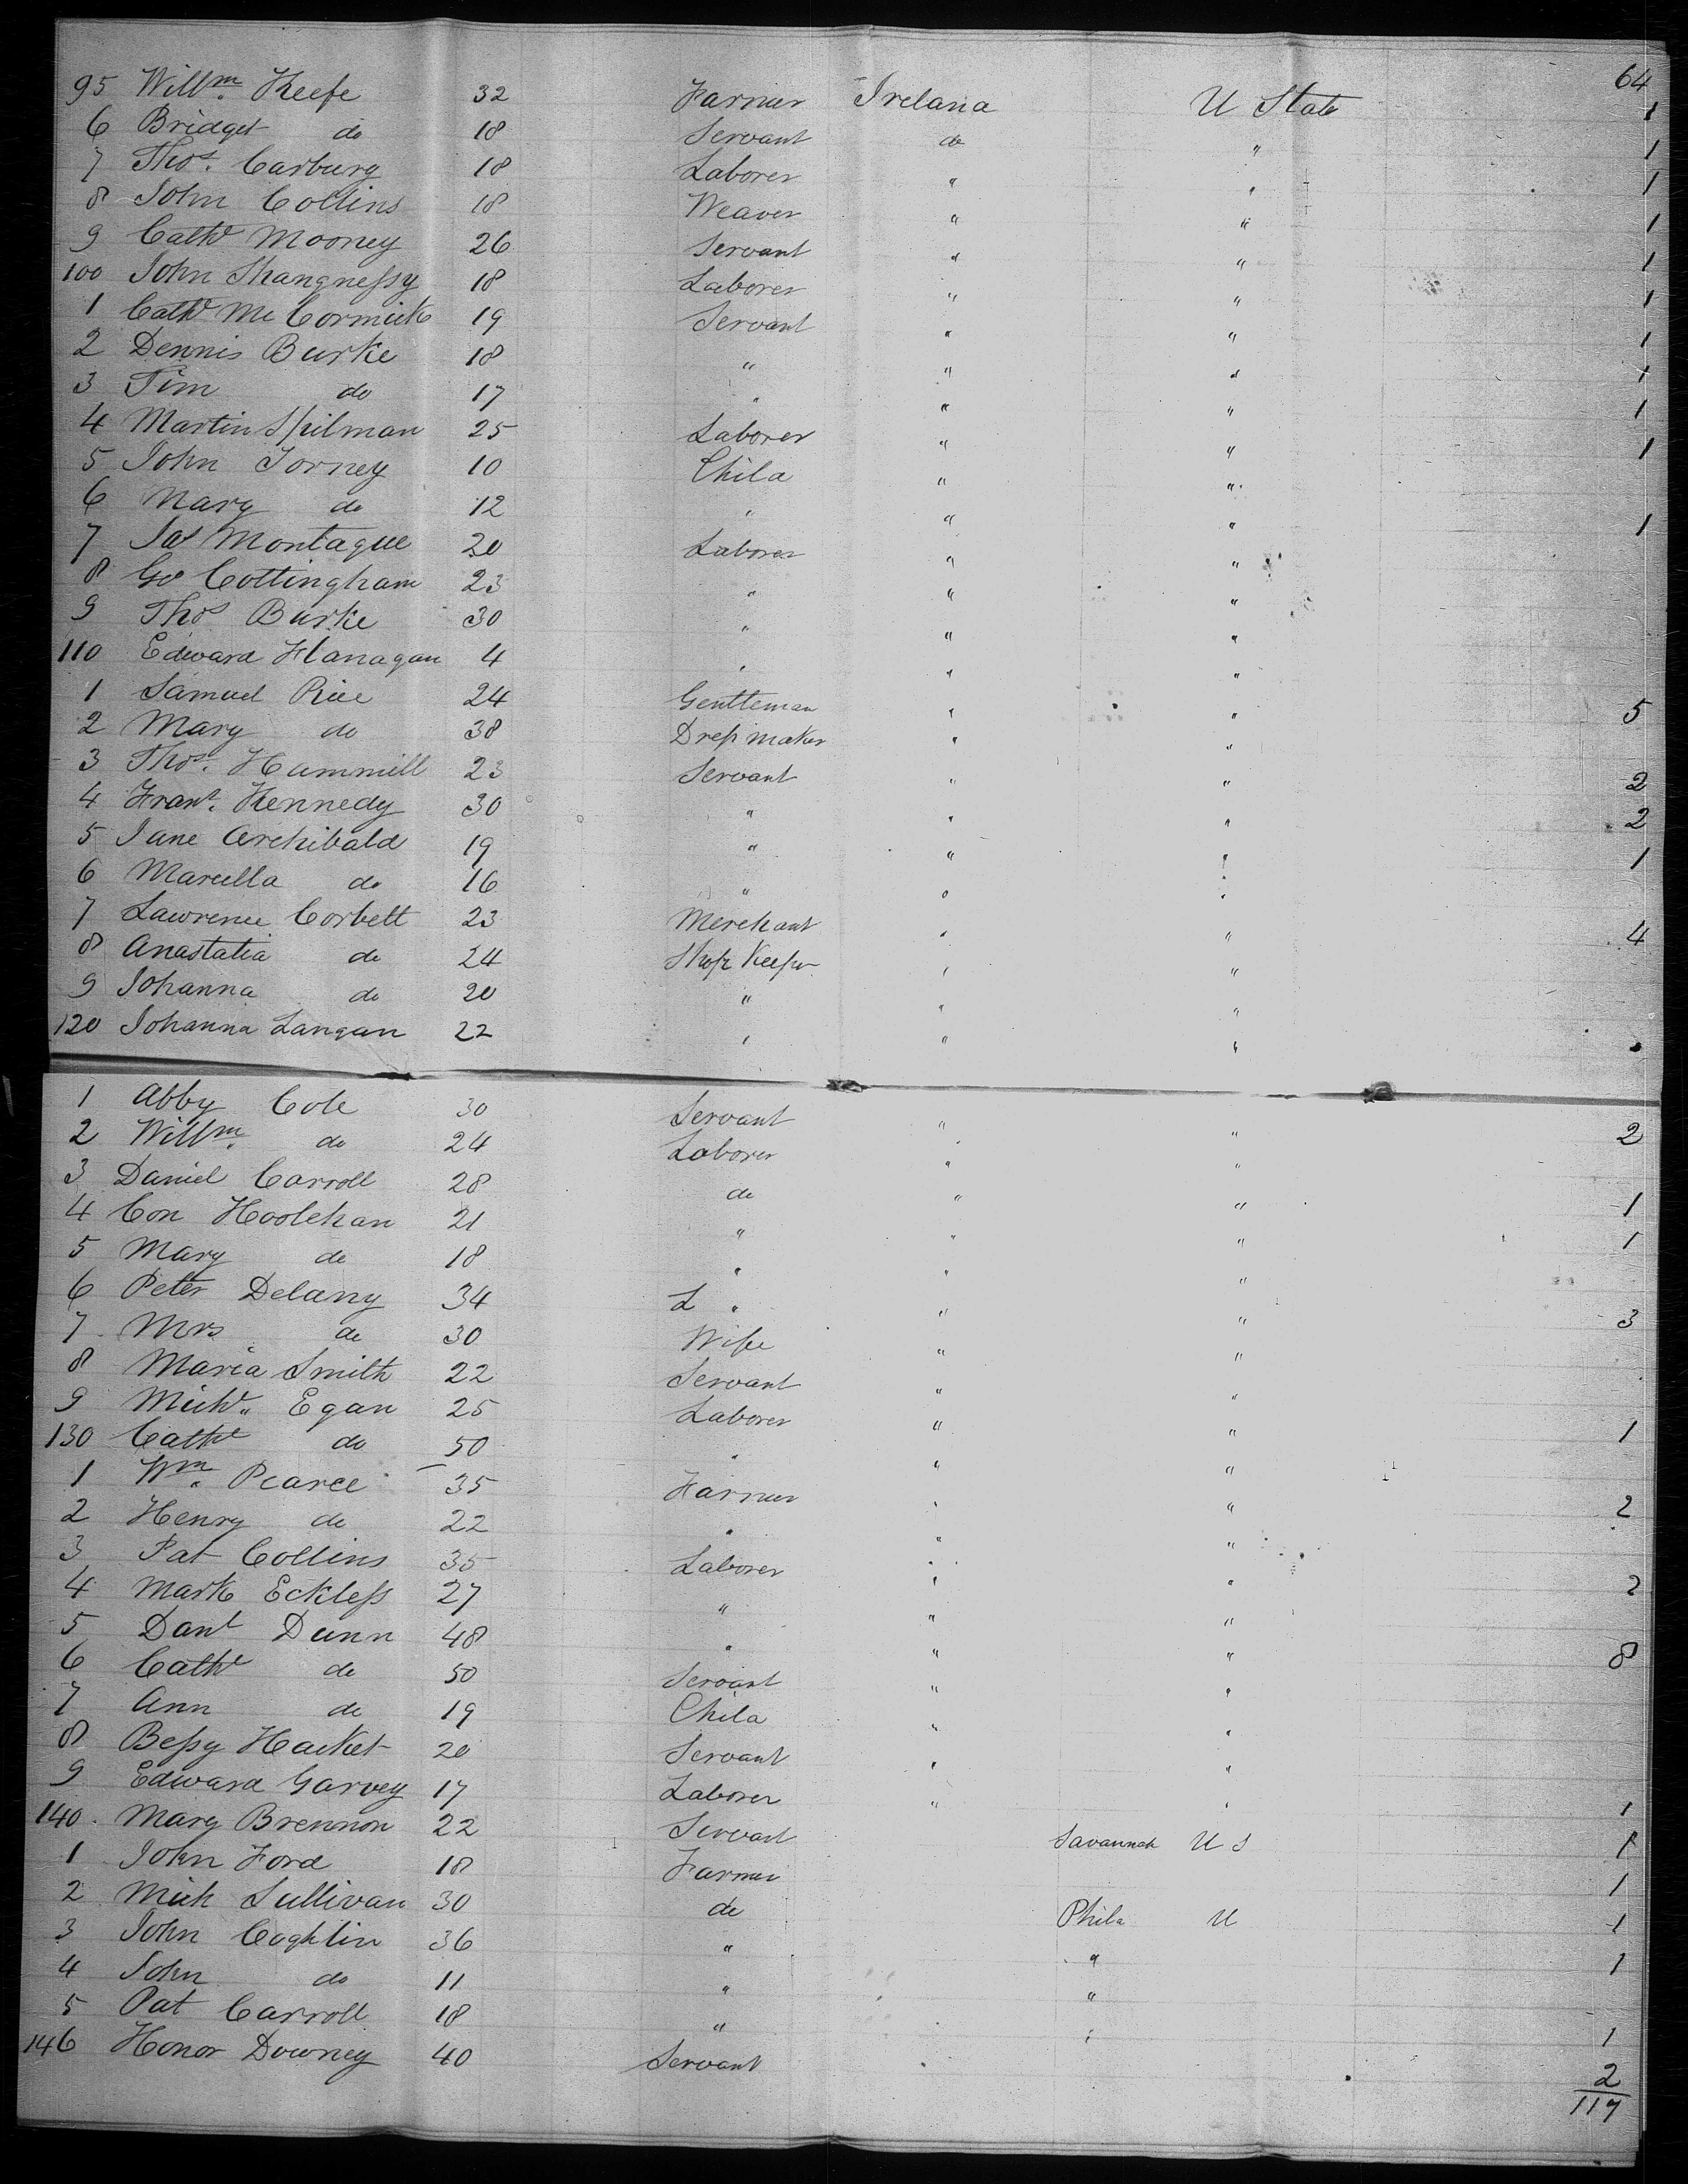 64
95 Willm. Keefe 32 Farmer Ireland U State 1
6 Bridget do 18 Servant do " 1
7 Thos. Carburg 18 Laborer " " 1
8 John Collins 18 Weaver " " 1
9 Cathe Mooney 26 Servant " " 1
100 John Shangnessy 18 Laborer " " 1
1 Cathe Mc Cormick 19 Servant " " 1
2 Dennis Burke 18 " " " 1
3 Tim do 17 " " " 1
4 Martin Spilman 25 Laborer " " 1
5 John Torney 10 Child " "
6 Mary do 12 " " " 1
7 Jas Montague 20 Laborer " "
8 Go Cottingham 23 " " "
9 Thos Burke 30 " " "
110 Edward Flanagan 4 " " "
1 Samuel Rice 24 Gentleman " " 5
2 Mary do 38 Dress maker " "
3 Thos. Hammill 23 Servant " " 2
4 Frans. Kennedy 30 " " " 2
5 Jane Archibald 19 " " " 1
6 Marcella do 16 " " "
7 Lawrence Corbett 23 Merchant " " 4
8 Anastatia do 24 Shop Keeper " "
9 Johanna do 20 " " "
120 Johanna Langan 22 " " "
1 Abby Cole 30 Servant " " 2
2 Willm. do 24 Laborer " "
3 Daniel Carroll 28 do " " 1
4 Con Hoolehan 21 " " " 1
5 Mary do 18 " " "
6 Peter Delany 34 L " " " 3
7 Mrs do 30 Wife " "
8 Maria Smith 22 Servant " "
9 Michl. Egan 25 Laborer " " 1
130 Cathe do 50 " " "
1 Wm. Pearce 35 Farmer " " 2
2 Henry do 22 " " "
3 Pat Collins 35 Laborer " " 2
4 Mark Eckless 27 " " "
5 Danl Dunn 48 " " " 8
6 Cathe do 50 Servant " "
7 Ann do 19 Child " "
8 Bessy Hacket 20 Servant " "
9 Edward Garvey 17 Laborer " " 1
140. Mary Brennon 22 Servant Savannah U S 1
1 John Ford 18 Farmer 1
2 Mich Sullivan 30 do Phila U 1
3 John Coghlin 36 " " 1
4 John do 11 " "
5 Pat Carroll 18 " " 1
146 Honor Downey 40 Servant 2
117